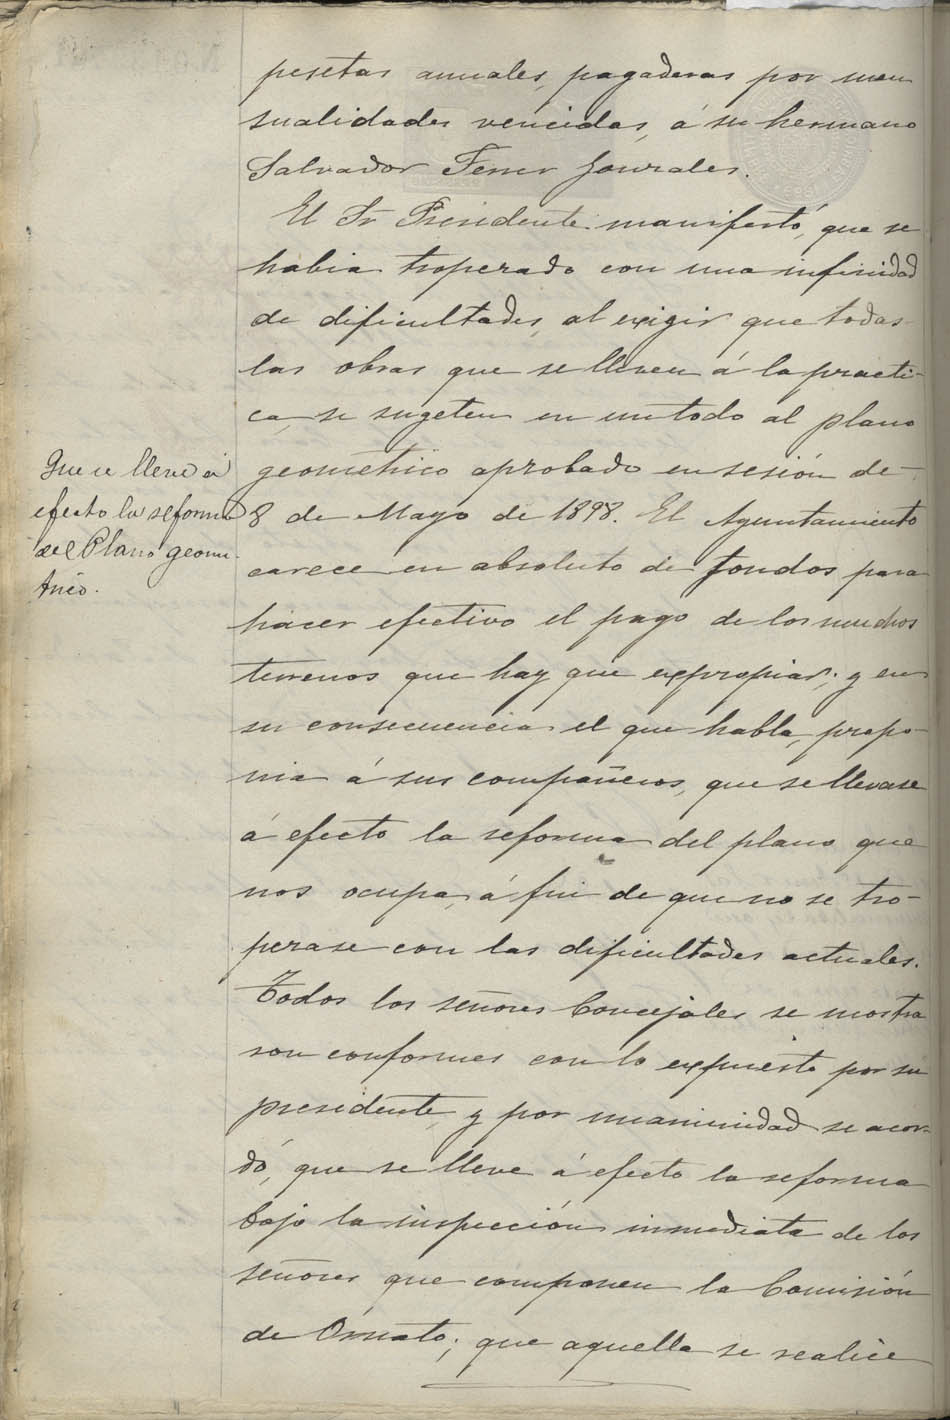 pesetas anuales, pagaderas por men
sualidades vencidas, á su hermano
Salvador Ferrer Gonzales.
El Sr Presidente manifestó, que se
habia troperado con una infinidad
de dificultades, al exigir que todas
las obras que se lleven á la practi-
ca, se sugeten en un todo al plano
geometrico aprobado en sesión de
8 de Mayo de 1898. El Ayuntamiento
carece en absoluto de fondos para
hacer efectivo el pago de los muchos
terrenos que hay que expropiar; y en
su consecuencia el que habla, propo-
nia á sus compañeros, que se llevase
á efecto la reforma del plano que
nos ocupa, á fin de que no se tro-
perase con las dificultades actuales.
Todos los señores Concejales se mostra
ron conformes con lo expuesto por su
presidente, y por unanimidad se acor-
dó, que se lleve á efecto la reforma
bajo la inspección inmediata de los
señores que componen la Comisión
de Ornato; que aquella se realice
Que se lleve á
efecto la reforma
del Plano geome-
trico.